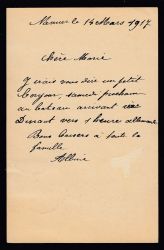 Namur le 14 Mars 1917.
Chère Marie
J'irais vous dire un petit
bonjour, samedi prochain
au bateau arrivant
Dinant vers 1 heure
Bons baisers à toute la
famille